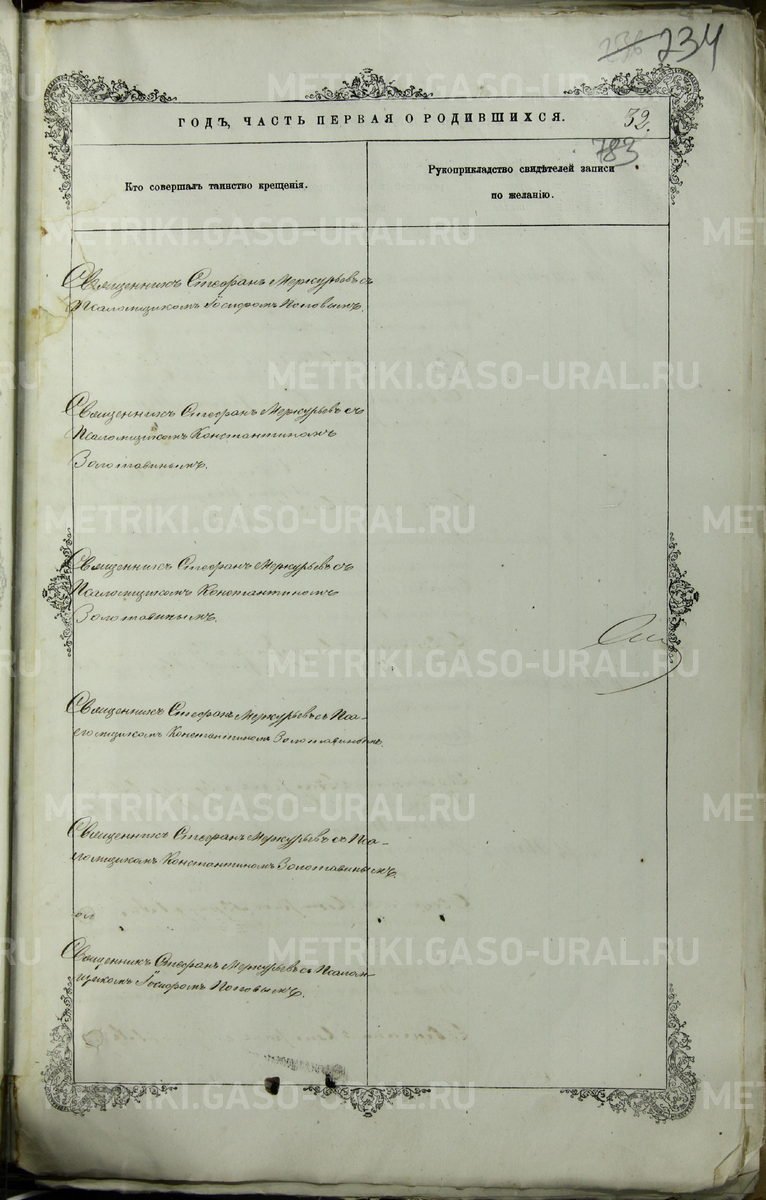 236 234
ГОДЪ, ЧАСТЬ ПЕРВАЯ О РОДИВШИХСЯ.
32.
783
Кто совершалъ таинство крещенія.
Рукоприкладство свидѣтелей записи
по желанію.
Священникъ Стефанъ Меркурьевъ съ
Псаломщикомъ Поповымъ.
Священникъ Стефанъ Меркурьевъ съ
Псаломщикомъ Константиномъ
Золотавинымъ.
Священникъ Стефанъ Меркурьевъ съ
Псаломщикомъ Константиномъ
Золотавинымъ.
Священникъ Стефанъ Меркурьевъ съ Пса-
ломщикомъ Константиномъ Золотавинымъ.
Священникъ Стефанъ Меркурьевъ съ Пса-
ломщикомъ Константиномъ Золотавинымъ.
Священникъ Стефанъ Меркурьевъ съ Псалом-
щикомъ Поповымъ.
METRIKI.GASO-URAL.RU